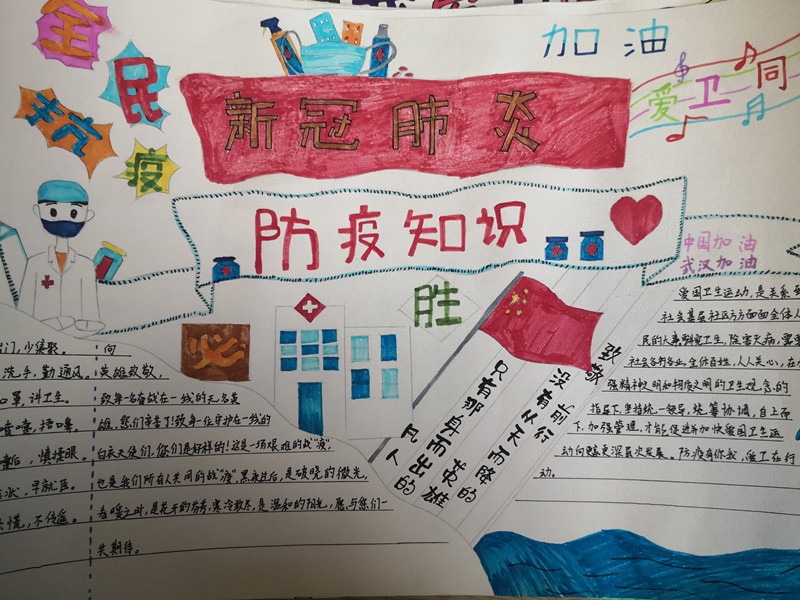 全民
抗疫
加油
爱卫同
新冠肺炎
防疫知识
中国加油
武汉加油
必
胜
出门,少集聚。
洗手,勤通风。
罩,讲卫生。
嚏,捂口鼻。
后,慎揉眼。
状,早就医。
慌,不传谣。
向
英雄致敬,
致每一名奋战在一线的无名英
雄,您们辛苦了!致每一位守护在一线的
白衣天使们,您们是好样的!这是一场艰难的战“疫”,
也是我们所有人共同的战“疫”,黑夜过后,是破晓的微光,
春暖之时,是花开的芬芳,寒冷散尽,是温和的阳光,愿与您们一
共期待。
致敬
前行
没有从天而降的
英雄
只有那身而出的
凡人
爱国卫生运动,是关系到
社会基层社区方方面面全体人
民的大事
卫生,除害灭病,需要
社会各行各业,全体百姓,人人关心,在加
强精神文明和物质文明的卫生观念的
指导下,坚持统一领导,统筹协调,自上而
下,加强管理,才能促进并加快爱国卫生运
动向更深层次发展。防疫有你我,爱卫在行
动。